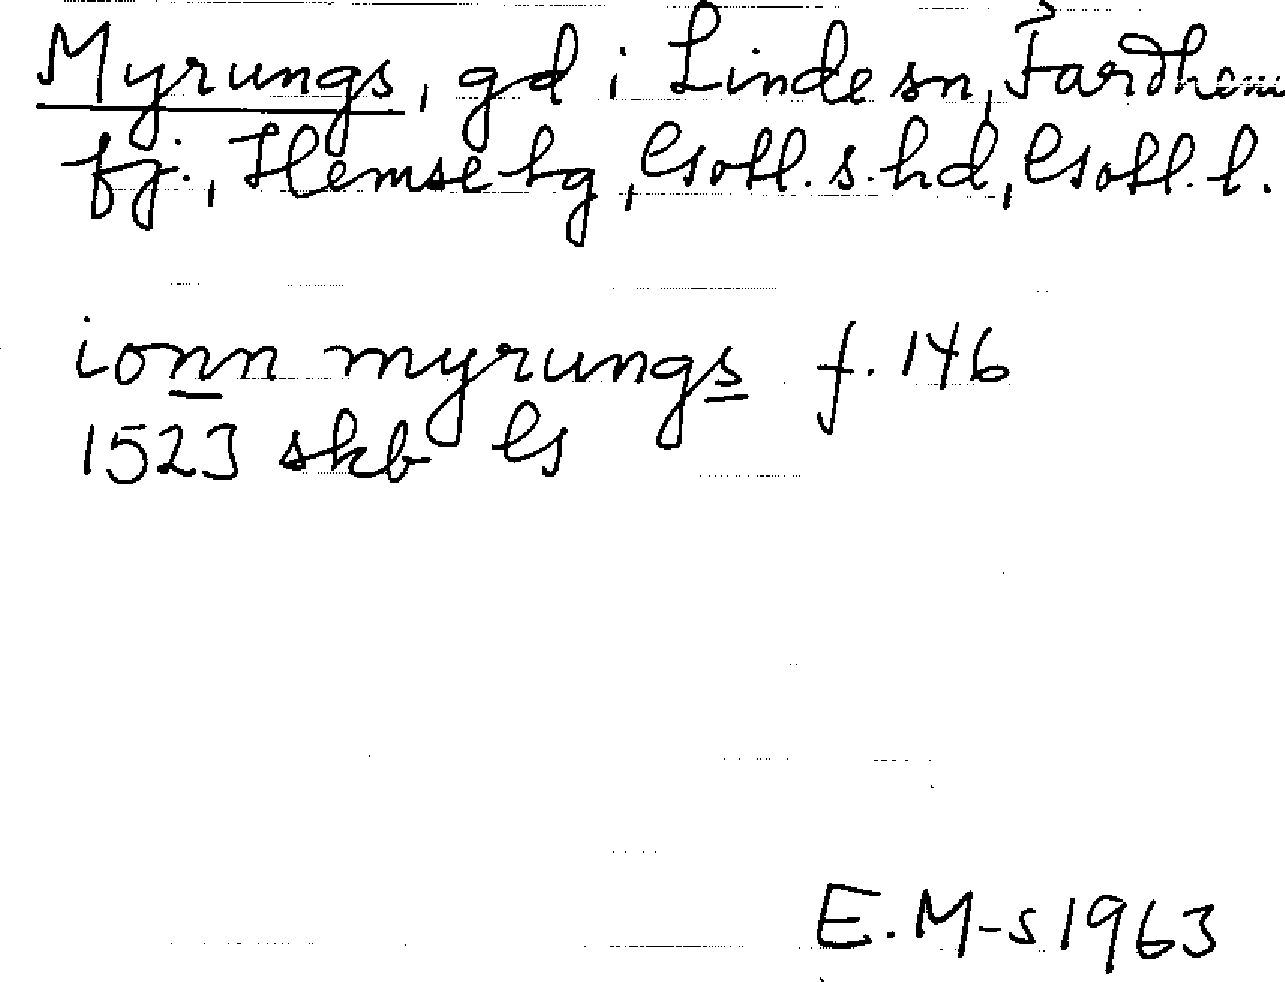 Myrungs, gd i Linde sn, Fardhem
tj., Hemse tg, Gotl. s. hd, Gotl. l.
ionn myrungs f. 146
1523 skb G
E. M-s 1963